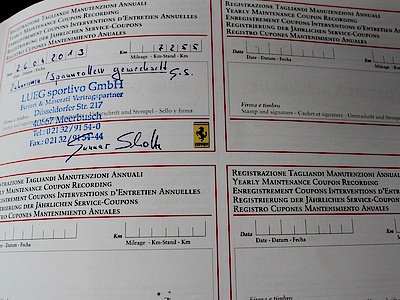 REGISTRAZIONE TAGLIANDI MANUTENZIONI ANNUALI
YEARLY MAINTENANCE COUPON RECORDING
ENREGISTREMENT COUPONS INTERVENTIONS D'ENTRETIEN ANNUELLES
REGISTRIERUNG DER JÄHRLICHEN SERVICE-COUPONS
REGISTRO CUPONES MANTENIMIENTO ANUALES
26.04.2013
Km 7255
Date - Datum - Fecha
Mileage - Km-Stand - Km
gewechselt G.S.
LUEG sportivo GmbH
Ferrari & Maserati Vertragspartner
Düsseldorfer Str. 217
40667 Meerbusch
Tel.: 02132/9154-0
Fax: 02132/9154-44
Unterschrift und Stempel - Sello y firma
REGISTRAZIONE TAGLIANDI MANUTENZIONI ANNUALI
YEARLY MAINTENANCE COUPON RECORDING
ENREGISTREMENT COUPONS INTERVENTIONS D'ENTRETIEN ANNUELLES
REGISTRIERUNG DER JÄHRLICHEN SERVICE-COUPONS
REGISTRO CUPONES MANTENIMIENTO ANUALES
Data
Date - Datum - Fecha
Km
Mileage - Km-Stand - Km
Firma e timbro
Stamp and signature - Cachet et signature - Unterschrift und Stempel
REGISTRAZIONE TAGLIANDI MANUTENZIONI ANNUALI
YEARLY MAINTENANCE COUPON RECORDING
ENREGISTREMENT COUPONS INTERVENTIONS D'ENTRETIEN ANNUELLES
REGISTRIERUNG DER JÄHRLICHEN SERVICE-COUPONS
REGISTRO CUPONES MANTENIMIENTO ANUALES
Date - Datum - Fecha
Km
Mileage - Km-Stand - Km
REGISTRAZIONE TAGLIANDI MANUTENZIONI ANNUALI
YEARLY MAINTENANCE COUPON RECORDING
ENREGISTREMENT COUPONS INTERVENTIONS D'ENTRETIEN
REGISTRIERUNG DER JÄHRLICHEN SERVICE-COUPONS
REGISTRO CUPONES MANTENIMIENTO ANUALES
Data
Date - Datum - Fecha
Km
Mileage - Km-Stand
Firma e timbro